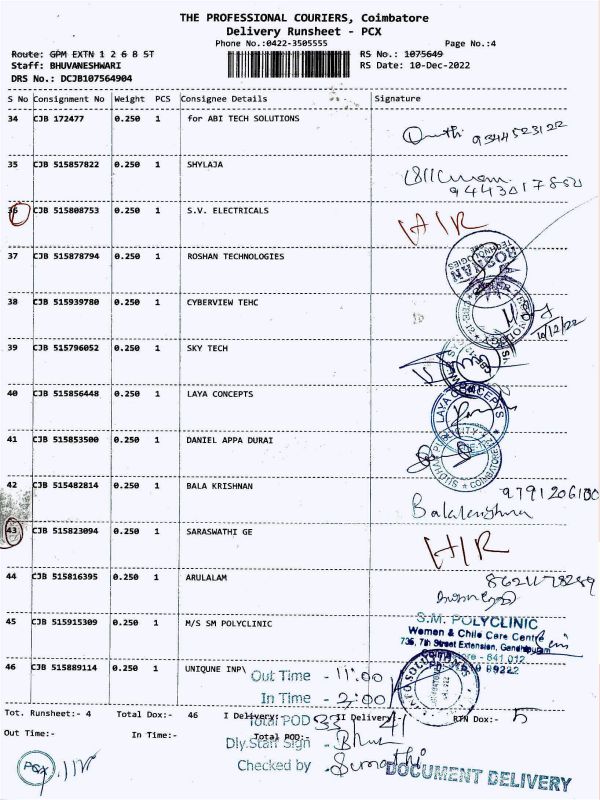 THE PROFESSIONAL COURIERS, Coimbatore
Delivery Runsheet - PCX
Phone No.:0422-3505555 Page No.:4
Route: GPM EXTN 1 2 6 8 ST RS No.: 1075649
Staff: BHUVANESHWARI RS Date: 10-Dec-2022
DRS No.: DCJB107564904
S No Consignment No Weight PCS Consignee Details Signature
34 CJB 172477 0.250 1 for ABI TECH SOLUTIONS
9344523122
35 CJB 515857822 0.250 1 SHYLAJA
36 CJB 515808753 0.250 1 S.V. ELECTRICALS H/R
37 CJB 515878794 0.250 1 ROSHAN TECHNOLOGIES
ROSHAN TECHNOLOGIES
38 CJB 515939780 0.250 1 CYBERVIEW TEHC
10/12/22
39 CJB 515796052 0.250 1 SKY TECH
40 CJB 515856448 0.250 1 LAYA CONCEPTS
LAYA CONCEPTS
41 CJB 515853500 0.250 1 DANIEL APPA DURAI
COIMBATORE
42 CJB 515482814 0.250 1 BALA KRISHNAN
Balakrishnan
43 CJB 515823094 0.250 1 SARASWATHI GE H/R
44 CJB 515816395 0.250 1 ARULALAM
45 CJB 515915309 0.250 1 M/S SM POLYCLINIC
S.M. POLYCLINIC
Women & Chile Care Centre
735, 7th Street Extension, Gandhipuram
641 012
46 CJB 515889114 0.250 1 UNIQUNE INP\
Out Time - 11:00
In Time - 2:00
Tot. Runsheet:- 4 Total Dox:- 46 I Delivery:- II Delivery:- RTN Dox:- 5
Total POD 33 / 41
Out Time:- In Time:- Total POD:-
Dly.Staff Sign - Bhu
Checked by - Sumathi
PCX
DOCUMENT DELIVERY